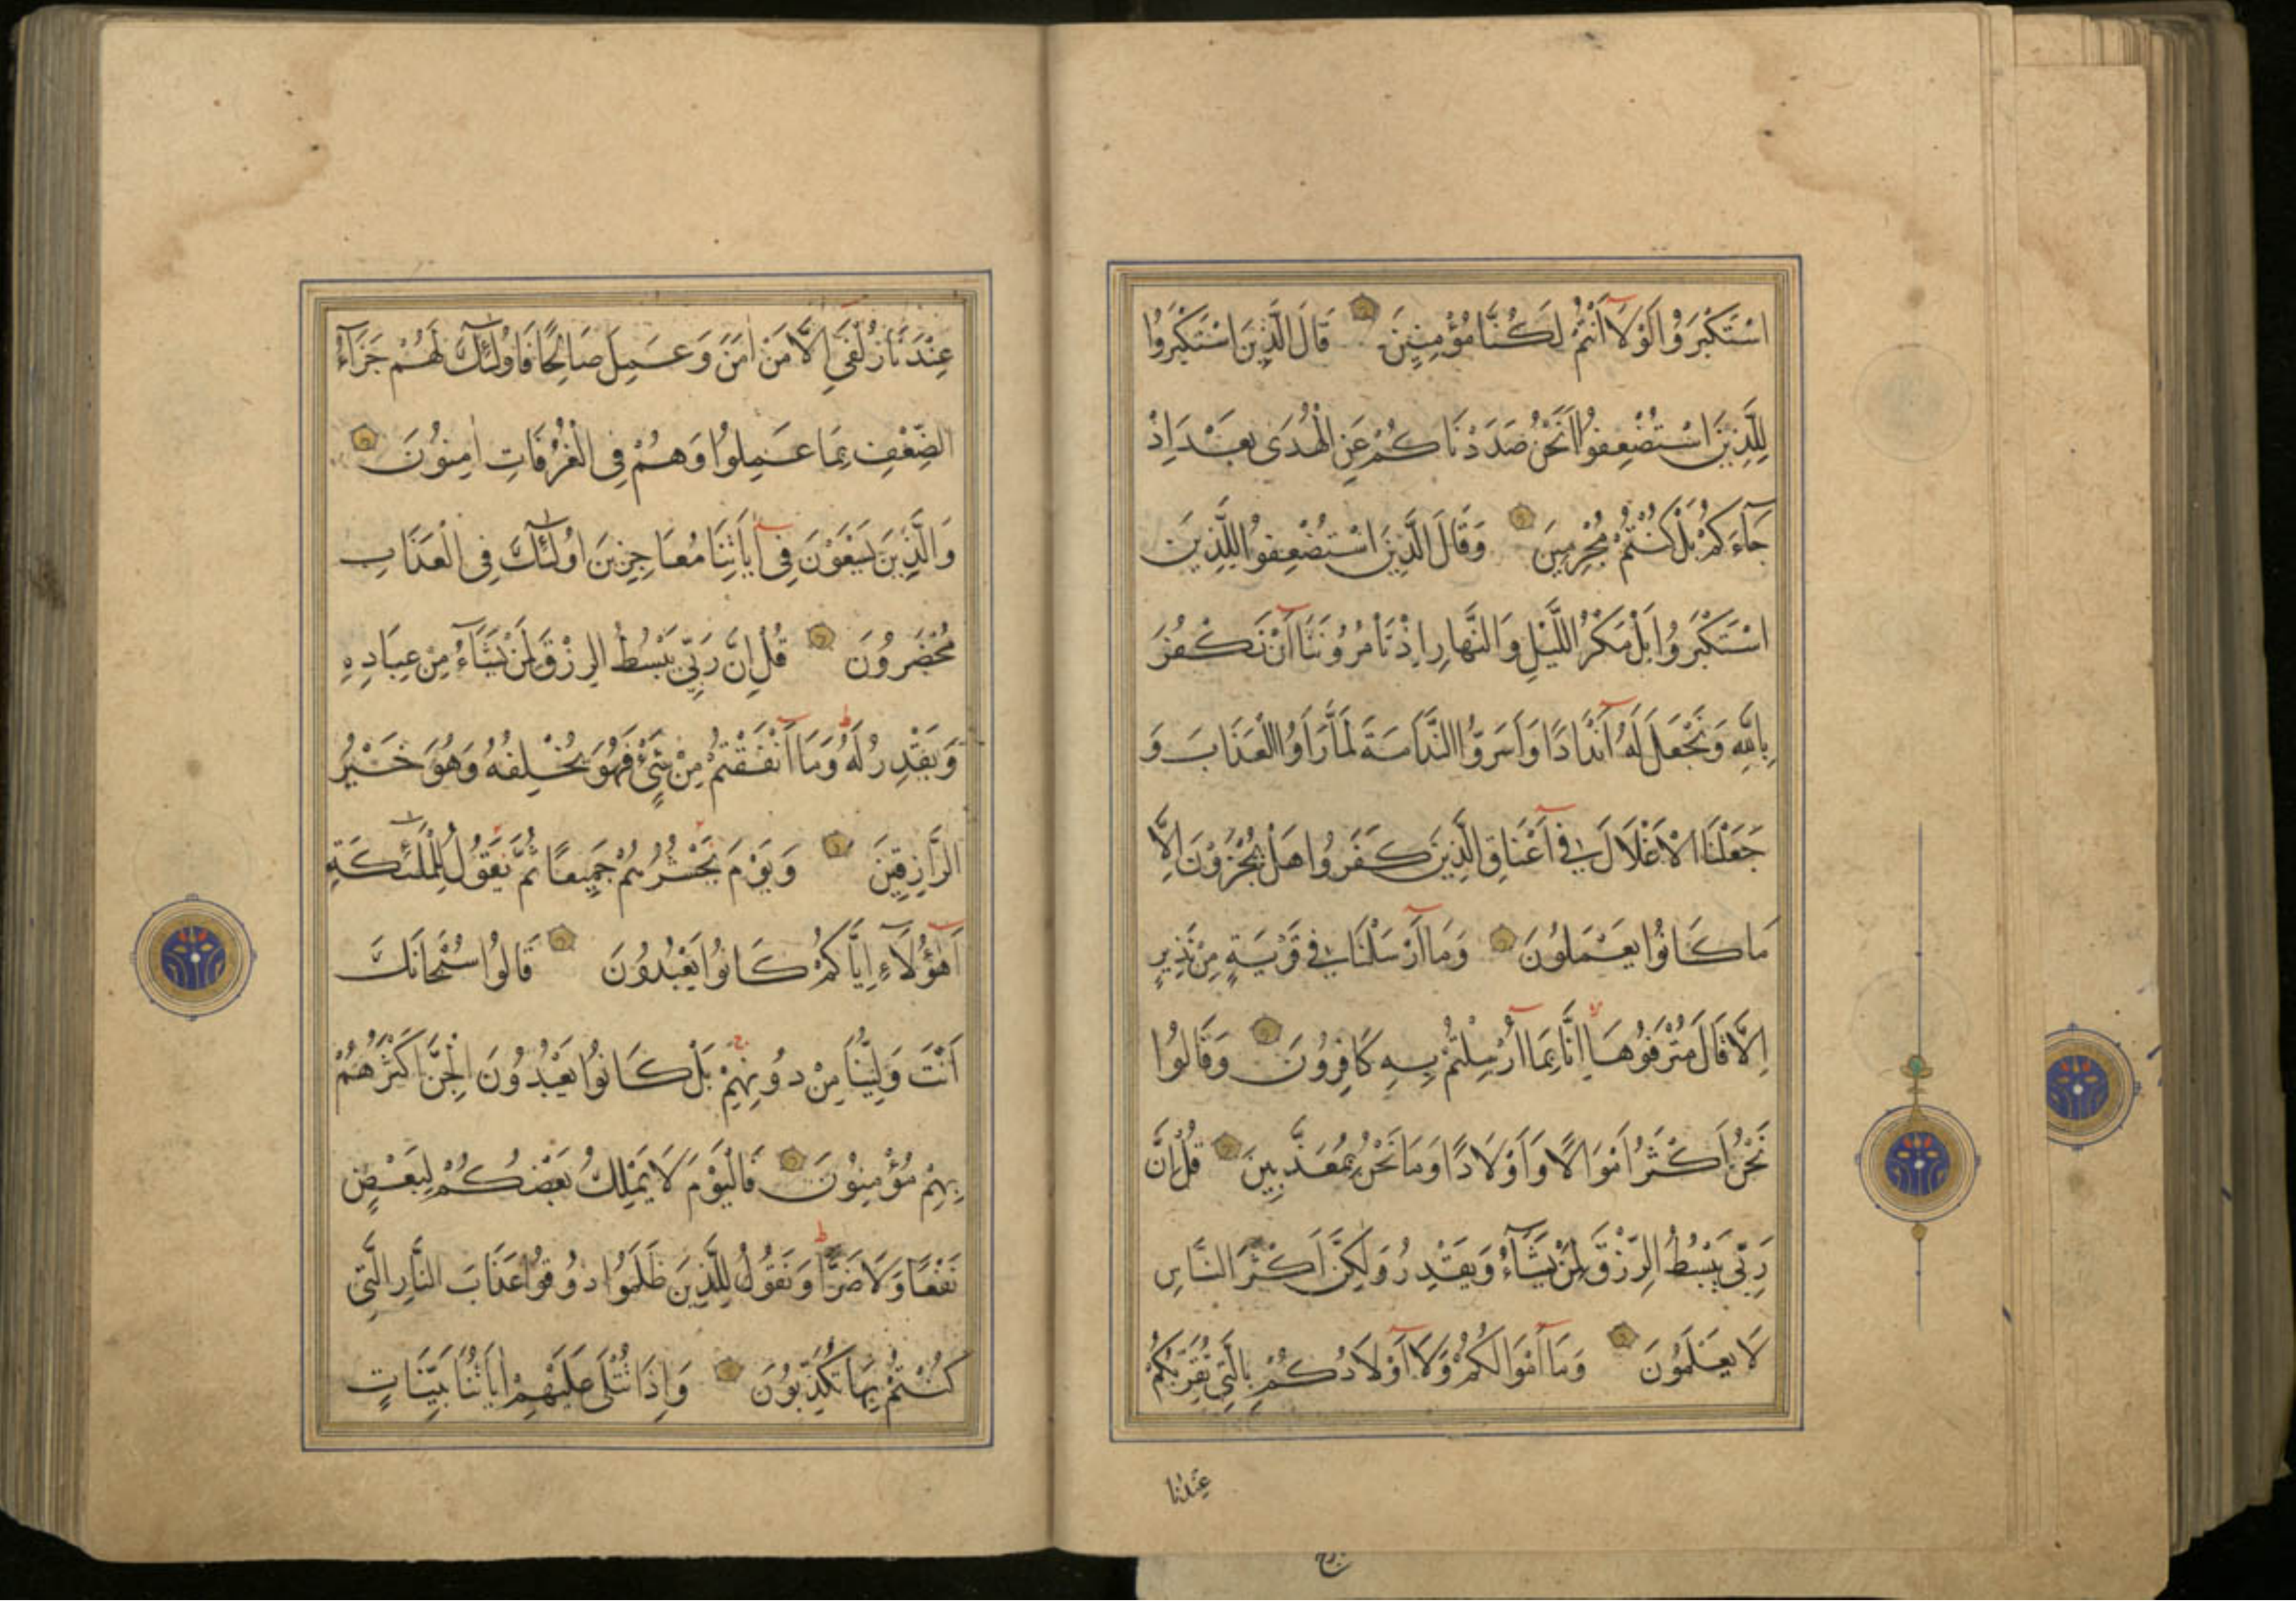 اسْتَكْبَرُوا لَوْلَا أَنْتُمْ لَكُنَّا مُؤْمِنِينَ قَالَ الَّذِينَ اسْتَكْبَرُوا
لِلَّذِينَ اسْتُضْعِفُوا أَنَحْنُ صَدَدْنَاكُمْ عَنِ الْهُدَى بَعْدَ اِذْ
جَآءَكُمْ بَلْ كُنْتُمْ مُجْرِمِينَ وَقَالَ الَّذِينَ اسْتُضْعِفُوا لِلَّذِينَ
اسْتَكْبَرُوا بَلْ مَكْرُ اللَّيْلِ وَالنَّهَارِ اِذْ تَأْمُرُونَنَا أَنْ نَكْفُرَ
بِاللهِ وَنَجْعَلَ لَهُ أَنْدَادًا وَأَسَرُّوا النَّدَامَةَ لَمَّا رَأَوُا الْعَذَابَ وَ
جَعَلْنَا الْاَغْلَالَ فِي أَعْنَاقِ الَّذِينَ كَفَرُوا هَلْ يُجْزَوْنَ اِلَّا
مَا كَانُوا يَعْمَلُونَ وَمَا أَرْسَلْنَا فِي قَرْيَةٍ مِنْ نَذِيرٍ
اِلَّا قَالَ مُتْرَفُوهَا اِنَّا بِمَا أُرْسِلْتُمْ بِهِ كَافِرُونَ وَقَالُوا
نَحْنُ أَكْثَرُ أَمْوَالًا وَأَوْلَادًا وَمَا نَحْنُ بِمُعَذَّبِينَ قُلْ اِنَّ
رَبِّي يَبْسُطُ الرِّزْقَ لِمَنْ يَشَآءُ وَيَقْدِرُ وَلَكِنَّ أَكْثَرَ النَّاسِ
لَا يَعْلَمُونَ وَمَا أَمْوَالُكُمْ وَلَا أَوْلَادُكُمْ بِالَّتِي تُقَرِّبُكُمْ
عندنا
عِنْدَنَا زُلْفَى اِلَّا مَنْ اٰمَنَ وَعَمِلَ صَالِحًا فَاُولٰٓئِكَ لَهُمْ جَزَآءُ
الضِّعْفِ بِمَا عَمِلُوا وَهُمْ فِي الْغُرُفَاتِ اٰمِنُونَ
وَالَّذِينَ يَسْعَوْنَ فِي اٰيَاتِنَا مُعَاجِزِينَ اُولٰٓئِكَ فِي الْعَذَابِ
مُحْضَرُونَ قُلْ اِنَّ رَبِّي يَبْسُطُ الرِّزْقَ لِمَنْ يَشَآءُ مِنْ عِبَادِهِ
وَيَقْدِرُ لَهُ وَمَا أَنْفَقْتُمْ مِنْ شَيْءٍ فَهُوَ يُخْلِفُهُ وَهُوَ خَيْرُ
الرَّازِقِينَ وَيَوْمَ نَحْشُرُهُمْ جَمِيعًا ثُمَّ نَقُولُ لِلْمَلٰٓئِكَةِ
أَهٰٓؤُلَآءِ اِيَّاكُمْ كَانُوا يَعْبُدُونَ قَالُوا سُبْحَانَكَ
أَنْتَ وَلِيُّنَا مِنْ دُونِهِمْ بَلْ كَانُوا يَعْبُدُونَ الْجِنَّ أَكْثَرُهُمْ
بِهِمْ مُؤْمِنُونَ فَالْيَوْمَ لَا يَمْلِكُ بَعْضُكُمْ لِبَعْضٍ
نَفْعًا وَلَا ضَرًّا وَنَقُولُ لِلَّذِينَ ظَلَمُوا ذُوقُوا عَذَابَ النَّارِ الَّتِي
كُنْتُمْ بِهَا تُكَذِّبُونَ وَاِذَا تُتْلَى عَلَيْهِمْ اٰيَاتُنَا بَيِّنَاتٍ